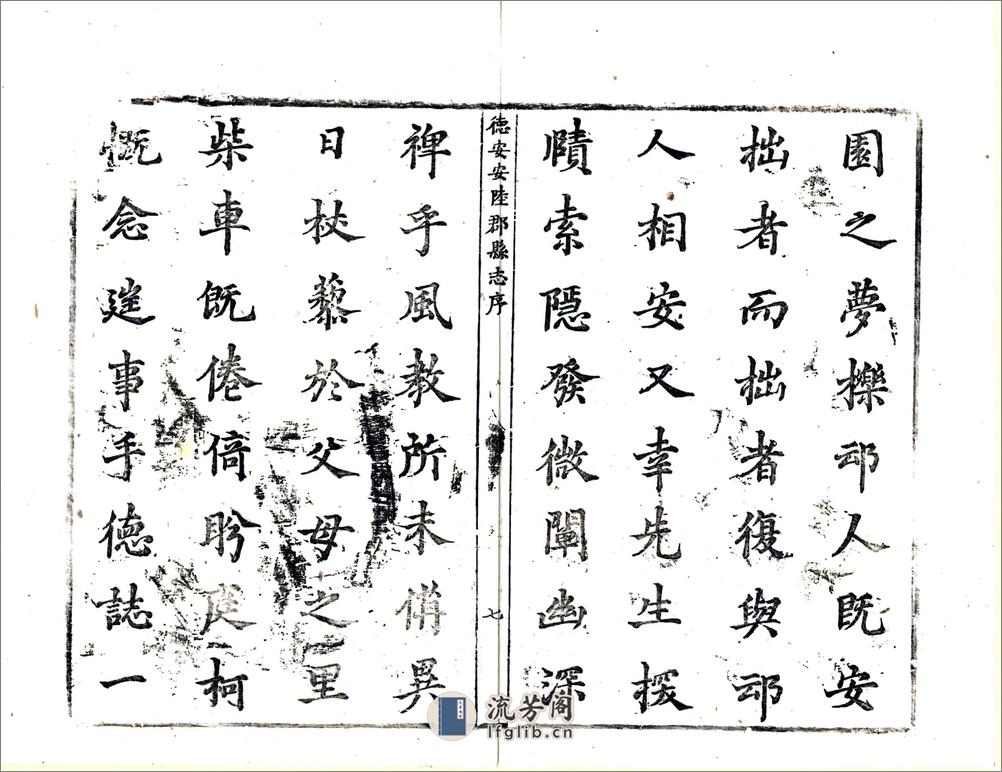 園之夢擽邔人既安
拙者而拙者復與邔
人相安又幸先生
賾索隱發微闡幽深
德安安陸郡縣志序
七
裨乎風教所未備異
日杖藜於父母之里
柴車既倦倚盼庭柯
慨念迋事手德誌一
流芳阁
lfglib.cn